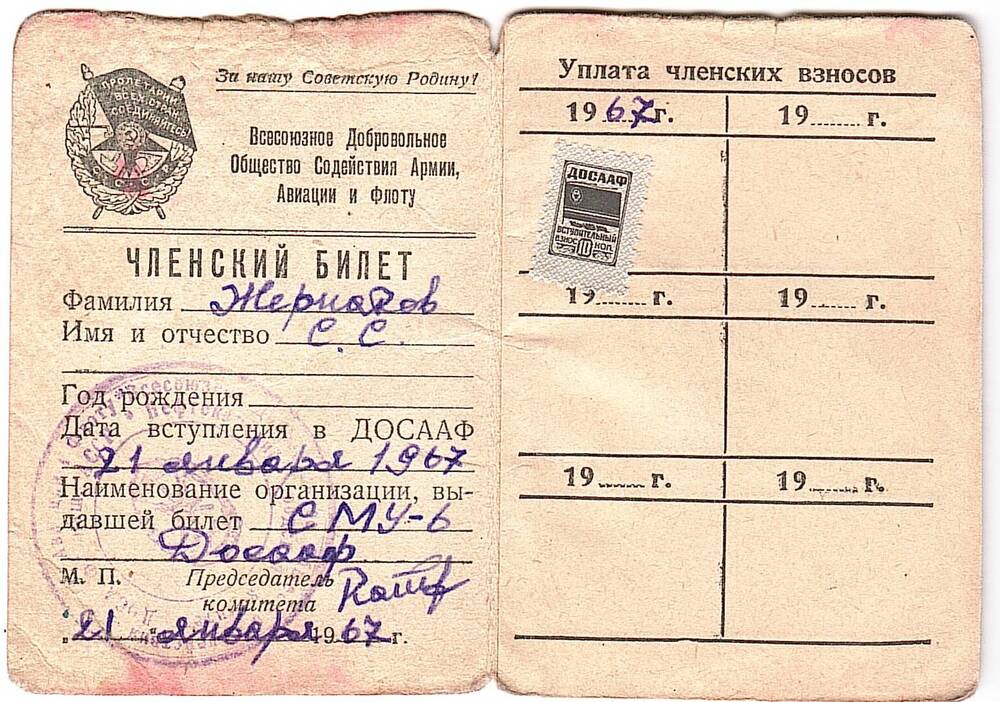 ПРОЛЕТАРИИ
ВСЕХ СТРАН
СОЕДИНЯЙТЕСЬ
За нашу Советскую Родину!
Всесоюзное Добровольное
Общество Содействия Армии,
Авиации и Флоту
ЧЛЕНСКИЙ БИЛЕТ
Фамилия Жернаков
Имя и отчество С. С.
Год рождения
Дата вступления в ДОСААФ
21 января 1967
Наименование организации, вы-
давшей билет СМУ-6
Досааф
М. П. Председатель
комитета
„21" января 1967 г.
Уплата членских взносов
1967 г. 19...... г.
ДОСААФ
ВСТУПИТЕЛЬНЫЙ
ВЗНОС 10 КОП.
19...... г. 19...... г.
19...... г. 19...... г.